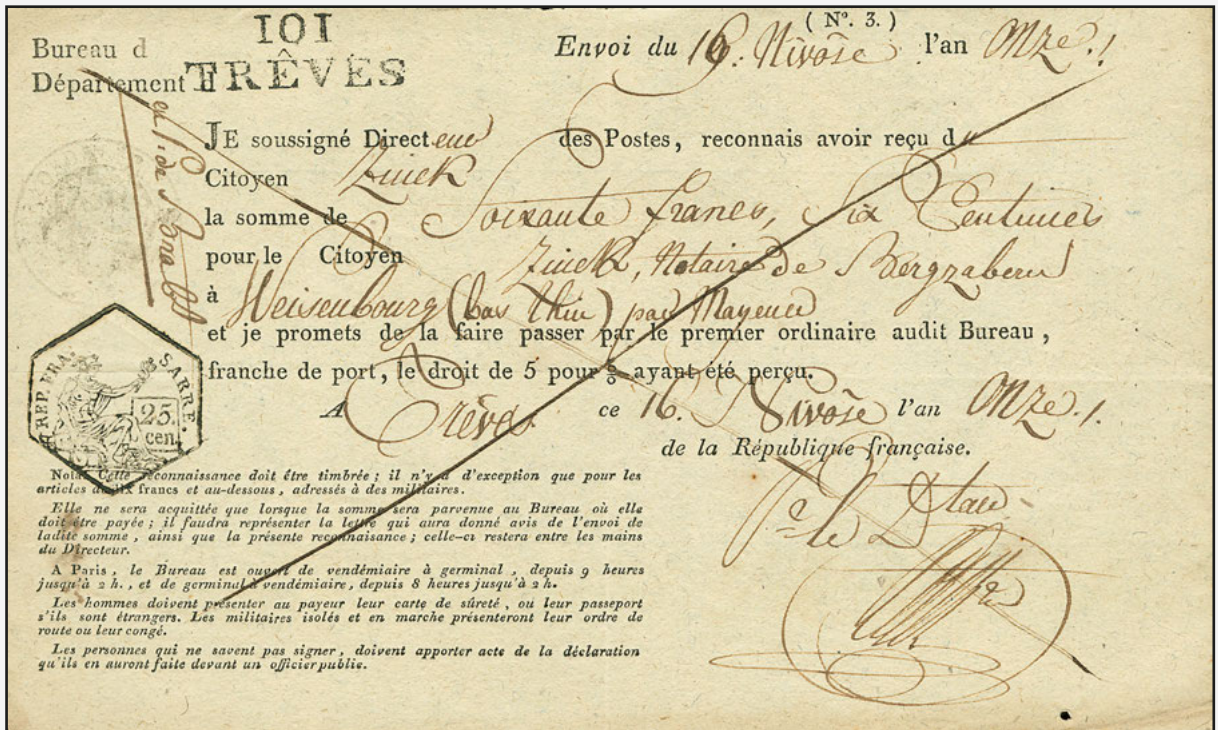 (N°. 3.)
101
Bureau d
TRÊVES
Département
Envoi du 16. Nivose l'an Onze.
JE soussigné Directeur des Postes, reconnais avoir reçu du
Citoyen Zuick
la somme de Soixante francs, Six Centimes
pour le Citoyen Zuick, Notaire de Bergzabern
à Weisenbourg (bas Rhin) par Mayence
et je promets de la faire passer par le premier ordinaire audit Bureau,
franche de port, le droit de 5 pour % ayant été perçu.
A Trêves ce 16. Nivose l'an Onze.
de la République française.
REP. FRA. SARRE.
25.
cen
Nota. Cette reconnaissance doit être timbrée ; il n'y a d'exception que pour les
articles de dix francs et au-dessous, adressés à des militaires.
Elle ne sera acquittée que lorsque la somme sera parvenue au Bureau où elle
doit être payée ; il faudra représenter la lettre qui aura donné avis de l'envoi de
ladite somme, ainsi que la présente reconnaisance ; celle-ci restera entre les mains
du Directeur.
A Paris, le Bureau est ouvert de vendémiaire à germinal, depuis 9 heures
jusqu'à 2 h., et de germinal à vendémiaire, depuis 8 heures jusqu'à 2 h.
Les hommes doivent présenter au payeur leur carte de sûreté, ou leur passeport
s'ils sont étrangers. Les militaires isolés et en marche présenteront leur ordre de
route ou leur congé.
Les personnes qui ne savent pas signer, doivent apporter acte de la déclaration
qu'ils en auront faite devant un officier public.